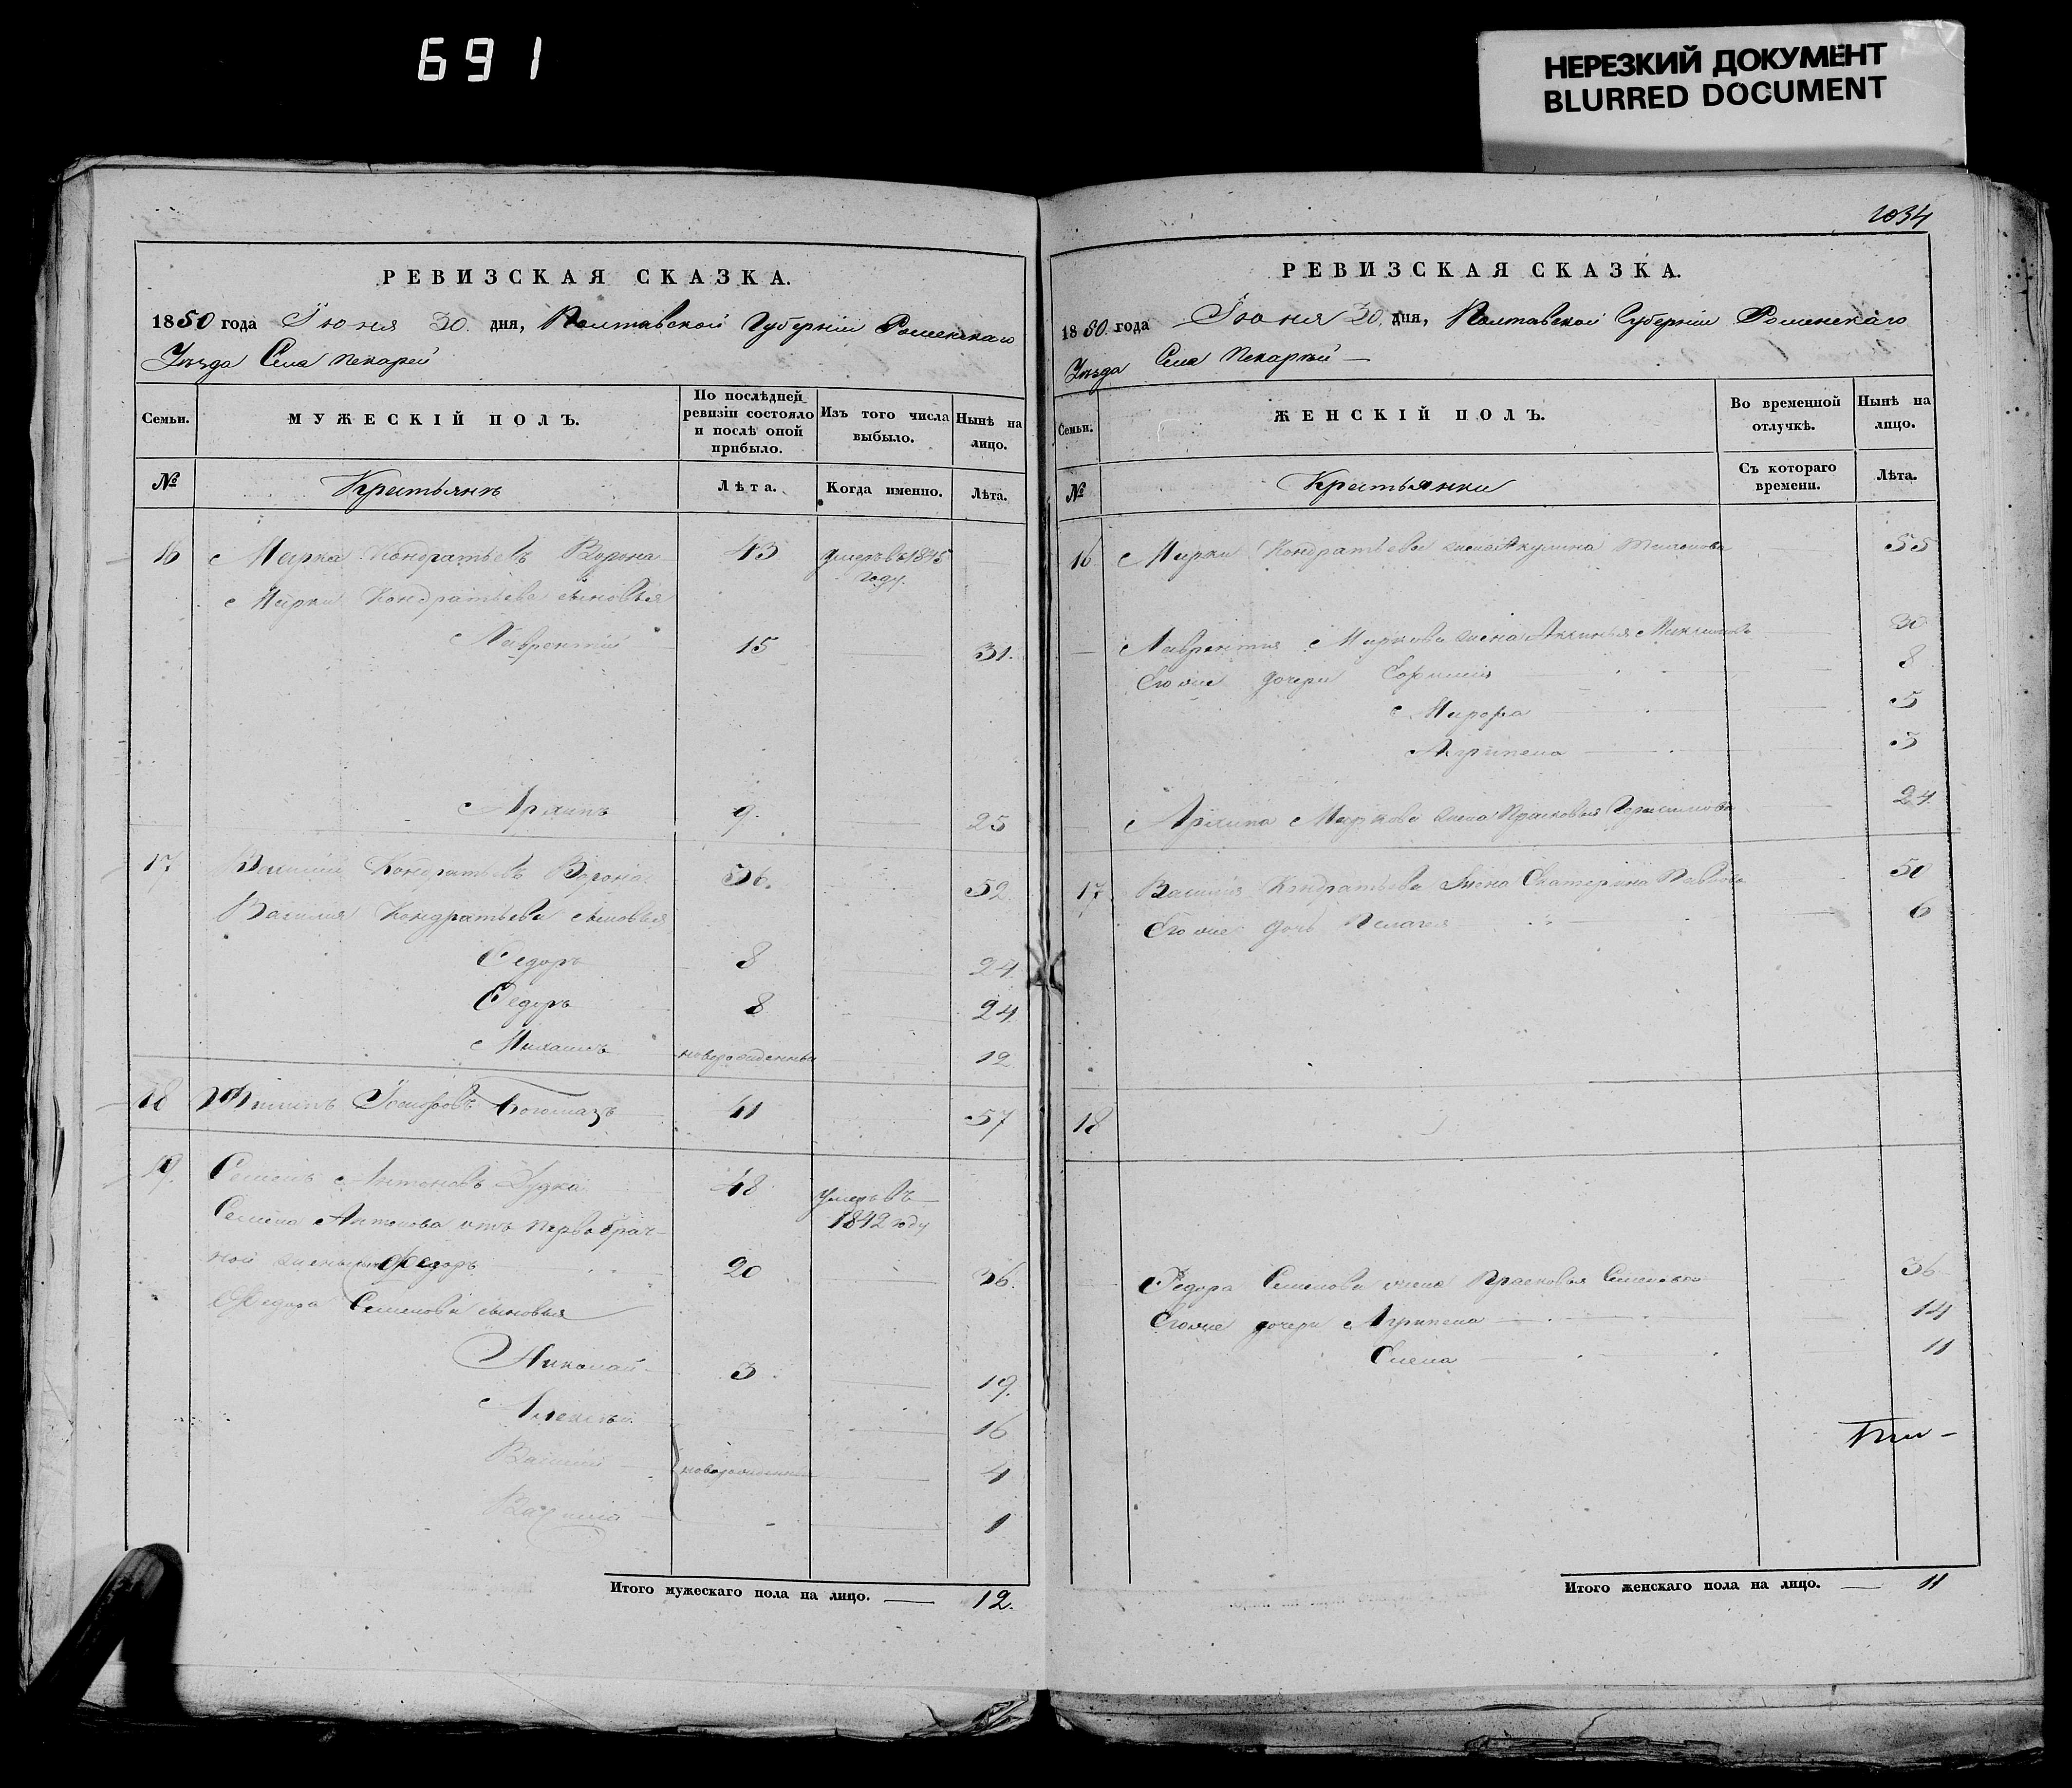 691
НЕРЕЗКИЙ ДОКУМЕНТ
BLURRED DOCUMENT
РЕВИЗСКАЯ СКАЗКА.
1850 года Іюня 30. дня, Полтавской Губерніи Роменскаго
Уѣзда Села Пекарей
Семьи.
МУЖЕСКІЙ ПОЛЪ.
По послѣдней ревизіи состояло и послѣ оной прибыло.
Изъ того числа выбыло.
Нынѣ на лицо.
№
Крестьянъ
Лѣта.
Когда именно.
Лѣта.
16 Марко Кондратьевъ Ворона 43 умеръ въ 1845 году.
Марка Кондратьева сыновья
Лаврентий 15 31.
Архипъ 9. 25
17 Василий Кондратьевъ Ворона 36. 52
Василия Кондратьева сыновья
Федоръ 8 24
Федоръ 8 24
Михаилъ новорожденный 12
18 41 57
19. Семенъ Антоновъ Дудка 48 умеръ въ 1842 году
Семена Антонова отъ первобрач-
ной жены сынъ Федоръ 20 36.
Федора Семенова сыновья
Николай 3 19.
Алексѣй 16
Василий новорожденные 4
1
Итого мужескаго пола на лицо. 12.
2034
РЕВИЗСКАЯ СКАЗКА.
1850 года Іюня 30. дня, Полтавской Губерніи Роменскаго
Уѣзда Села Пекарей
Семьи.
ЖЕНСКІЙ ПОЛЪ.
Во временной отлучкѣ.
Нынѣ на лицо.
№
Крестьянки
Съ котораго времени.
Лѣта.
16 Марка Кондратьева жена Акулина 55
Лаврентия Маркова жена 30
Его же дочери 8
5
Агрипена 3
Архипа Маркова жена Прасковья Герасимова 24
17 Василия Кондратьева жена Екатерина Павлова 50
Его же дочь Пелагея 6
18
Федора Семенова жена Прасковья Семенова 36
Его же дочери Агрипена 14
Елена 11
Итого женскаго пола на лицо. 11